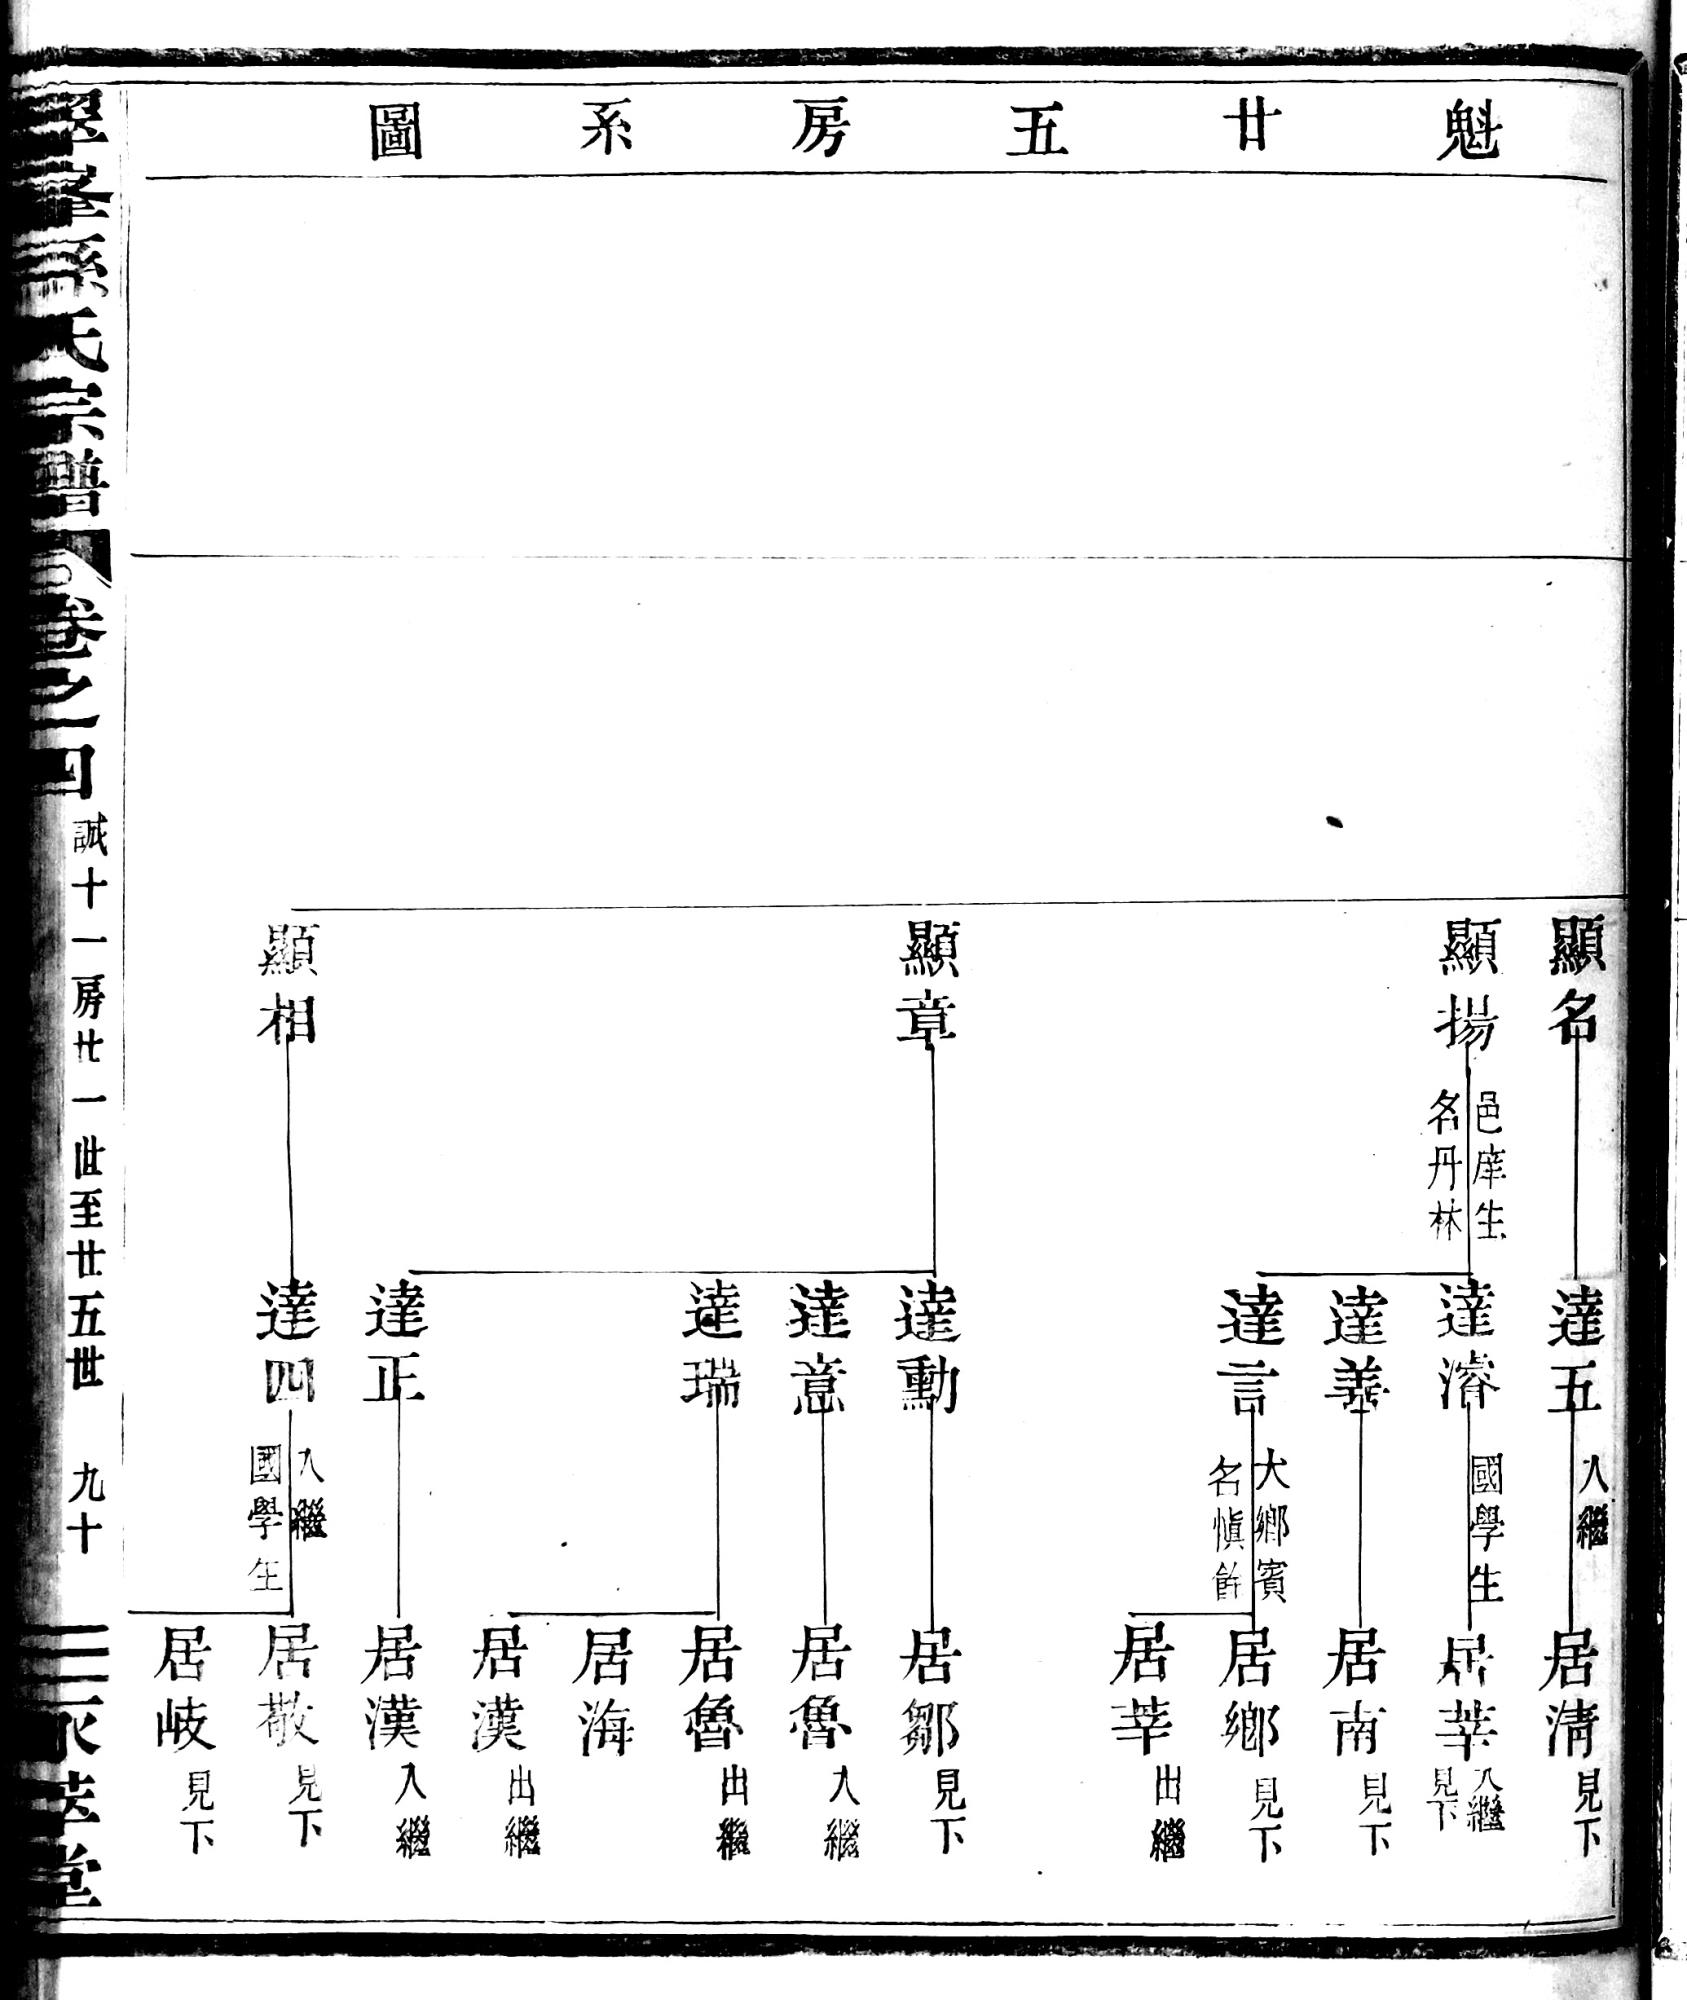 魁廿五房系圖
顯名
顯揚 邑庠生 名丹林
顯章
顯相
達五 入繼
達濬 國學生
達善
達言 大鄉賓 名慎餘
達勳
達意
達瑞
達正
達四 入繼 國學生
居清 見下
居莘 入繼 見下
居南 見下
居鄉 見下
居莘 出繼
居鄒 見下
居魯 入繼
居魯 出繼
居海
居漢 出繼
居漢 入繼
居敬 見下
居岐 見下
孫氏宗譜
卷之四
誠十一房廿一世至廿五世
九十
堂